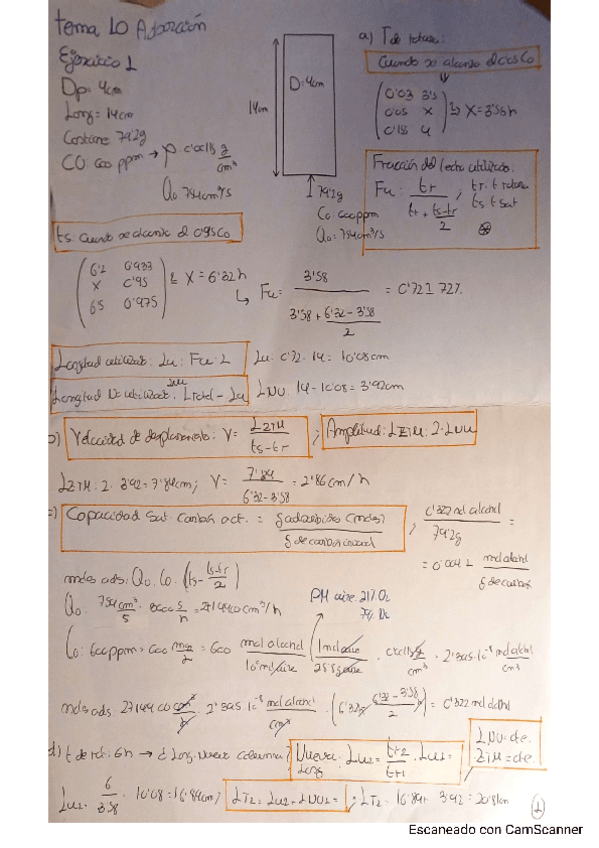 Tema 10 Adsorción
Ejercicio 1
Dp = 4cm
Long = 14cm
Contiene 79'2g
CO: 600 ppm → ρ 0'00115 g/cm³
Q₀ 754 cm³/s
14cm
D=4cm
79'2g
Co 600ppm
Q₀ = 754 cm³/s
a) T de rotura:
Cuando se alcanza el 0'05 Co
0'03 3'5
0'05 x
0'15 4
X = 3'58 h
Fracción del lecho utilizado:
Fu: tr / (tr + (ts-tr)/2) ; tr: t rotura
ts t sat
ts: cuando se alcanza el 0'95 Co
6'2 0'933
x 0'95
6'5 0'975
X = 6'32 h
Fu = 3'58 / (3'58 + (6'32 - 3'58)/2) = 0'72 72%
Longitud utilizada: Lu: Fu · L Lu: 0'72 · 14 = 10'08cm
Longitud No utilizada: Ltotal - Lu LNU: 14 - 10'08 = 3'92cm
b) Velocidad de desplazamiento: V = LZTM / (ts - tr) ; Amplitud: LZTM: 2 · LNU
LZTM: 2 · 3'92 = 7'84cm; V = 7'84 / (6'32 - 3'58) = 2'86 cm/h
c) Capacidad Sat. Carbón act. = g adsorbidos (moles) / g de carbón ; 0'322 mol alcohol / 79'2g =
= 0'004 mol alcohol / g de carbón
moles ads: Q₀ · C₀ · (ts - (ts-tr)/2)
PM aire: 21% O₂
79% N₂
Q₀: 754 cm³/s · 3600 s/h = 2714400 cm³/h
C₀: 600ppm = 600 = 600 mol alcohol / 10⁶ mol aire · 1 mol aire / · g/cm³ = 2'385·10⁻⁸ mol alcohol / cm³
moles ads: 2714400 cm³/h · 2'385·10⁻⁸ mol alcohol / cm³ · (6'32 - (6'32 - 3'58)/2) = 0'322 mol alcohol
d) t de rot: 6h → ¿Long. Nueva columna? Nueva Long: Lu₂ = tr₂/tr₁ · Lu₁ =
LNU = cte.
ZTM = cte.
Lu₂ = 6/3'58 · 10'08 = 16'89cm; LT₂ = Lu₂ + LNU₂ = ; LT₂ = 16'89 + 3'92 = 20'81cm
1
Escaneado con CamScanner